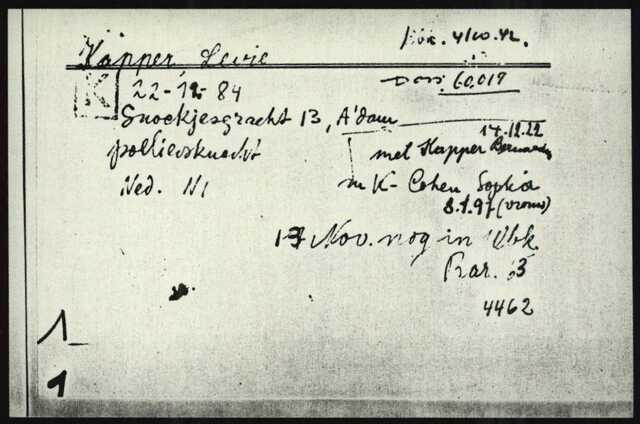 Kapper, Levie
4/10.42.
K
22-12-84
Doss 60.017
Snoekjesgracht 13, A'dam
14.12.22
poeliersknecht
met Kapper Bernard
Ned. NI
m K- Cohen Sophia
8.1.97 (vrouw)
13 Nov. nog in Wbk.
Bar. 63
4462
1
1